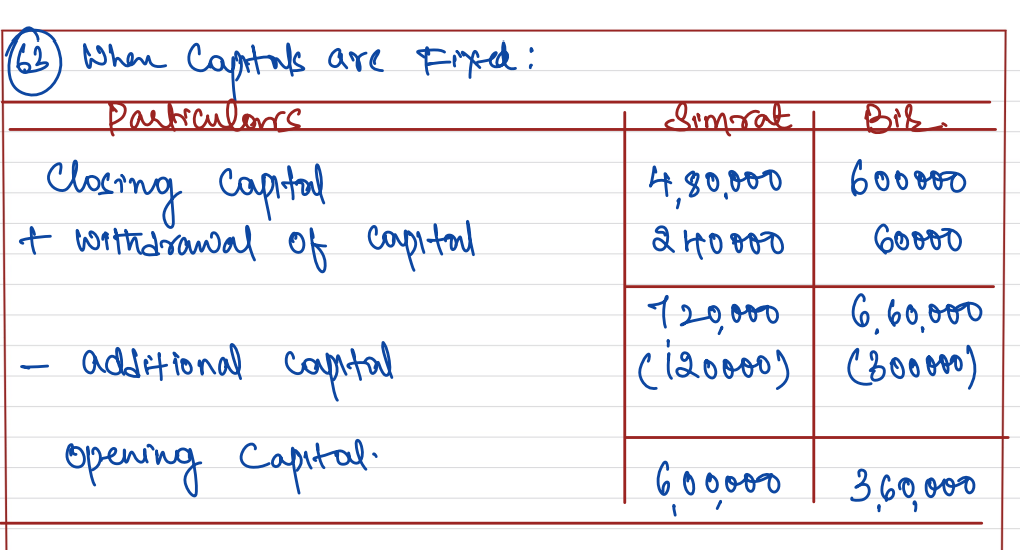 63 When Capitals are Fixed:
Particulars Simrat Bir.
Closing Capital 4,80,000 600000
+ withdrawal of capital 240000 60000
720,000 6,60,000
- additional capital (120000) (300000)
Opening Capital. 6,00,000 3,60,000